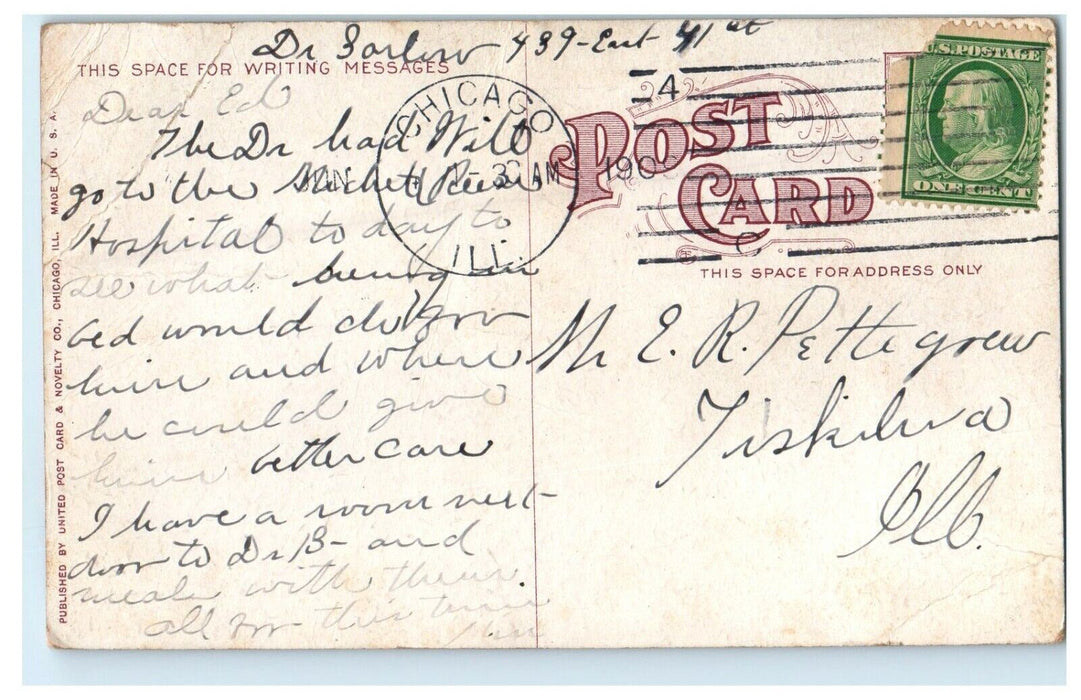 Dr Barlow 439-East 41 st
THIS SPACE FOR WRITING MESSAGES
Dear Ed
The Dr had Will
go to the Michael Reese
Hospital to day to
see what being in
bed would do for
him and where
he could give
him better care
I have a room next
door to Dr B- and
meals with them.
all for this time
PUBLISHED BY UNITED POST CARD & NOVELTY CO., CHICAGO, ILL. MADE IN U. S. A.
CHICAGO
JAN 3 AM 190
ILL.
4
C
POST
CARD
U.S. POSTAGE
ONE CENT
THIS SPACE FOR ADDRESS ONLY
Mr E. R. Pettegrew
Tiskilwa
Ill.